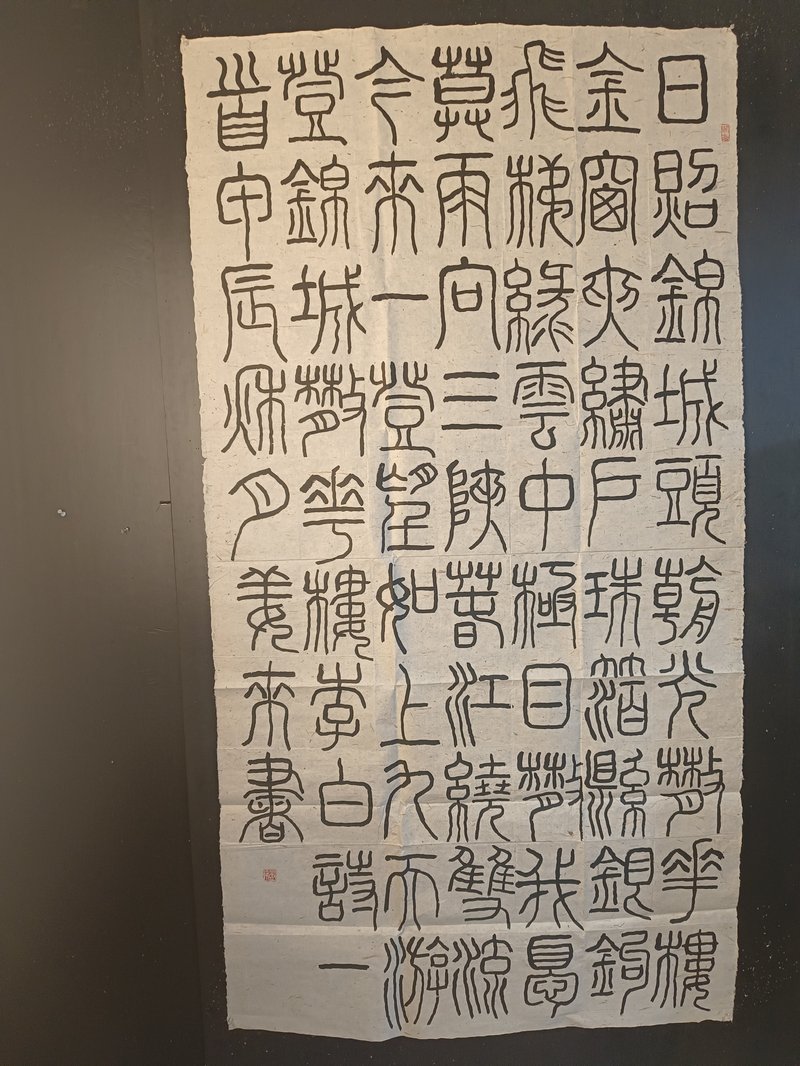 日照錦城頭朝光散花樓
金窗夾繡戶珠箔縣銀鉤
飛梯綠雲中極目散我憂
莫雨向三陜春江繞雙流
今來一登望如上九天游
登錦城散花樓李白詩一
首甲辰秋月姜來書